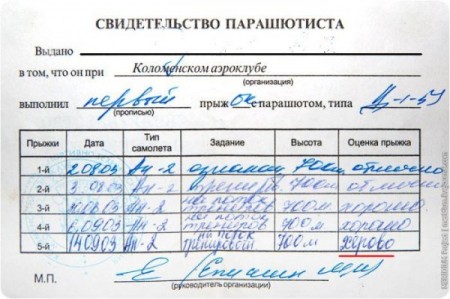 СВИДЕТЕЛЬСТВО ПАРАШЮТИСТА
Выдано
в том, что он при Коломенском аэроклубе
(организация)
выполнил первый прыжок с парашютом, типа Д-1-5У
(прописью)
Прыжки Дата Тип самолета Задание Высота Оценка прыжка
1-й 20803 Ан-2 ознаком 700м отлично
2-й 3.0803 Ан-2 700м отлично
3-й Ан-2 700м хорошо
4-й 60903 Ан-2 700м хорошо
5-й 140903 Ан-2 700м хёрово
М.П.
(руководитель организации)